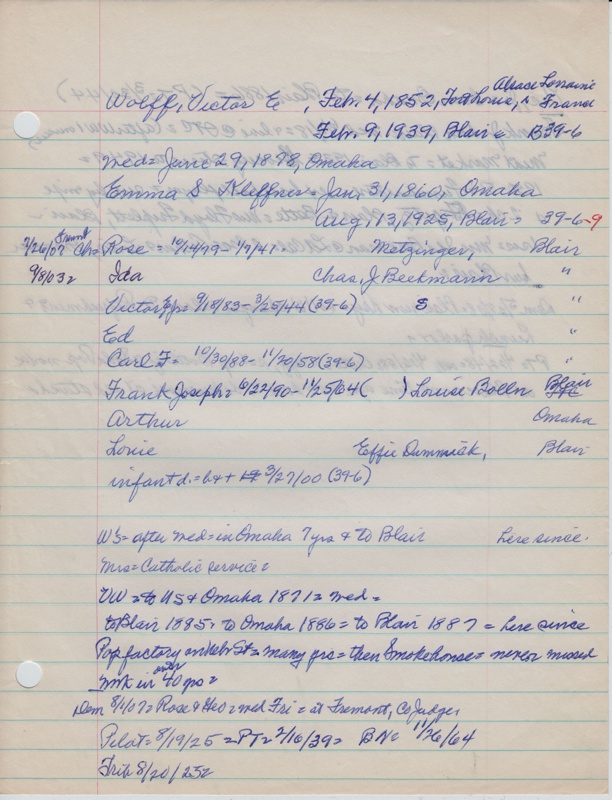 Alsace Lorraine
Wolff, Victor E , Feb. 4, 1852, Fort Louis, France
Feb. 9, 1939, Blair = B39-6
med = June 29, 1878, Omaha
Emma S Kleffner = Jan, 31, 1860, Omaha
Aug, 13, 1925, Blair = 39-6-9
7/26/07 Fremont Chs = Rose = 10/14/79 - 1/7/41 Metzinger, Blair
9/8/03 = Ida Chas, J Beekmann "
Victor Ep = 9/18/83 - 3/25/44 (39-6) S "
Ed "
Carl F = 10/30/88 - 11/20/58 (39-6) "
Frank Joseph = 6/22/90 - 11/25/64 ( ) Louise Bolln Blair
Arthur Omaha
Louie Effie Dummick, Blair
infant d. = b & + 3/27/00 (39-6)
W's = after med = in Omaha 7 yrs & to Blair here since.
Mrs = Catholic service =
VW = to US & Omaha 1871 = med =
to Blair 1885 = to Omaha 1886 = to Blair 1887 = here since
Pop factory on Nebr St = many yrs = then Smokehouse = never missed
wk in over 40 yrs =
Dem 8/1/07 = Rose & Geo = med Fri = at Fremont, Co Judge
Pilot = 8/19/25 = PT = 2/16/39 = BN = 11/26/64
Trib 8/20/25 =